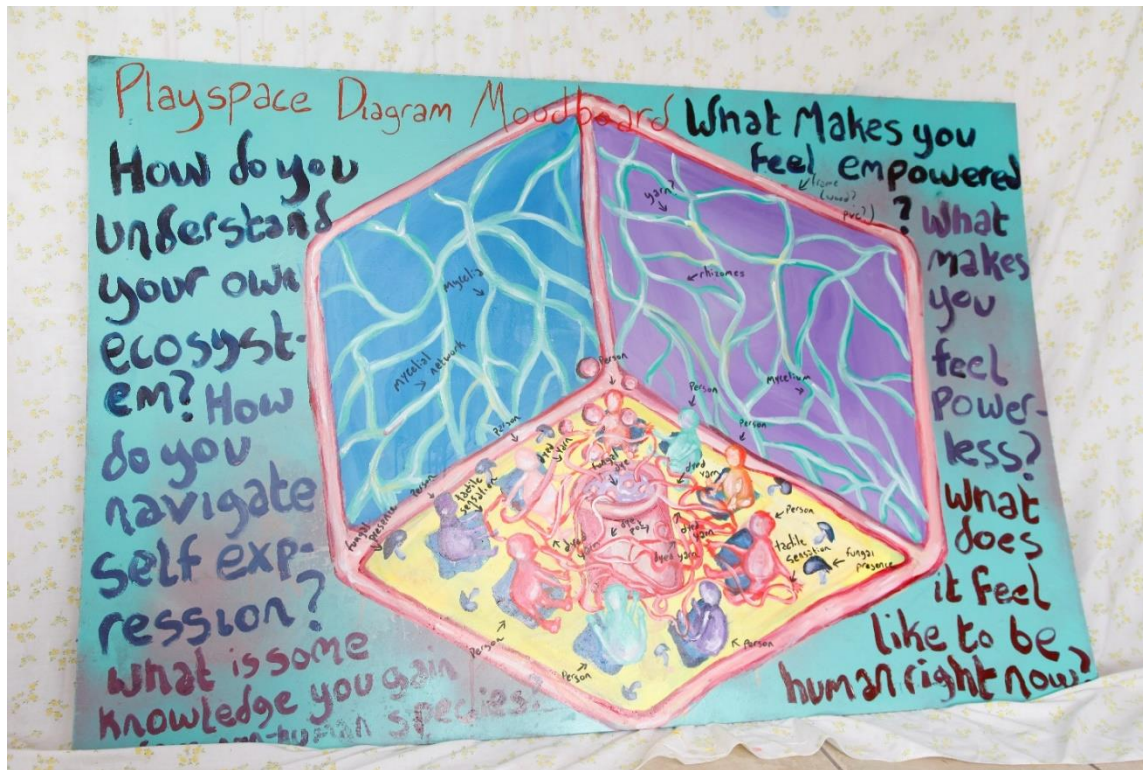 Playspace Diagram Moodboard
How do you
understand
your own
ecosyst-
em? How
do you
navigate
self exp-
ression?
What is some
knowledge you gain
human species?
What Makes you
feel empowered
? What
makes
you
feel
power-
less?
What
does
it feel
like to be
human right now?
frame
(wood?
pvc?)
yarn?
rhizomes
Mycelium
Mycelia
Mycelial
network
Person
Person
Person
Person
Person
tactile
sensation
fungal
presence
dyed
yarn
fungal
dye
dyed
yarn
dye
pot
dyed
yarn
dyed
yarn
dyed yarn
Person
tactile
sensation
fungal
presence
Person
Person
Person